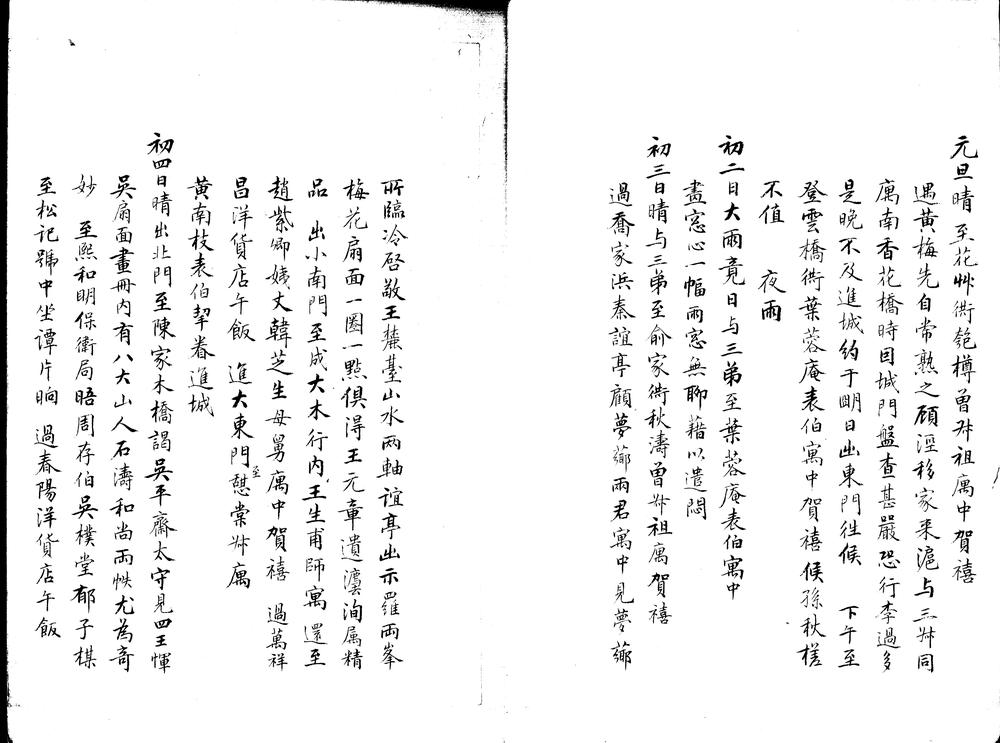 元旦晴至花艸衖匏樽曾叔祖寓中賀禧
遇黃梅先自常熟之顧涇移家来滬与三叔同
寓南香花橋時因城門盤查甚嚴恐行李過多
是晚不及進城约于明日出東門徃候　下午至
登雲橋衖葉蓉庵表伯寓中賀禧候孫秋槎
不值　夜雨
初二日大雨竟日与三弟至葉蓉庵表伯寓中
畫窓心一幅雨窓無聊藉以遣悶
初三日晴与三弟至俞家衖秋濤曾叔祖寓賀禧
過喬家浜秦誼亭顧夢薌兩君寓中見夢薌
所臨冷启敬王麓臺山水两軸誼亭出示羅两峯
梅花扇面一圈一點俱得王元章遺灋洵属精
品　出小南門至成大木行内王生甫師寓還至
趙紫卿姨丈韓芝生母舅寓中賀禧　過萬祥
昌洋貨店午飯　進大東門至憩棠叔寓
黃南枝表伯挈眷進城
初四日晴出北門至陳家木橋謁吳平齋太守見四王惲
吳扇面畫冊内有八大山人石濤和尚兩帙尤為奇
妙　至熙和明保衛局晤周存伯吳樸堂郁子楳
至松記號中坐谭片晌　過春陽洋貨店午飯